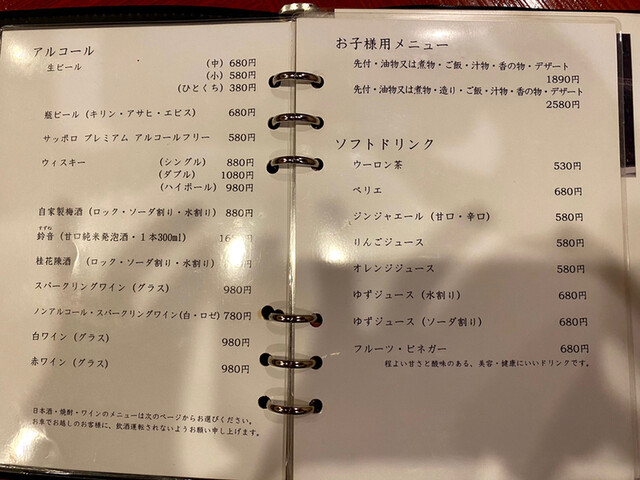 アルコール
生ビール (中) 680円
(小) 580円
(ひとくち) 380円
瓶ビール (キリン・アサヒ・エビス) 680円
サッポロ プレミアム アルコールフリー 580円
ウィスキー (シングル) 880円
(ダブル) 1080円
(ハイボール) 980円
自家製梅酒 (ロック・ソーダ割り・水割り) 880円
すずね
鈴音 (甘口純米発泡酒・1本300ml)
桂花陳酒 (ロック・ソーダ割り・水割り)
スパークリングワイン (グラス) 980円
ノンアルコール・スパークリングワイン(白・ロゼ) 780円
白ワイン (グラス) 980円
赤ワイン (グラス) 980円
日本酒・焼酎・ワインのメニューは次のページからお選びください。
お車でお越しのお客様に、飲酒運転されないようお願い申し上げます。
お子様用メニュー
先付・油物又は煮物・ご飯・汁物・香の物・デザート
1890円
先付・油物又は煮物・造り・ご飯・汁物・香の物・デザート
2580円
ソフトドリンク
ウーロン茶 530円
ペリエ 680円
ジンジャエール (甘口・辛口) 580円
りんごジュース 580円
オレンジジュース 580円
ゆずジュース (水割り) 680円
ゆずジュース (ソーダ割り) 680円
フルーツ・ビネガー 680円
程よい甘さと酸味のある、美容・健康にいいドリンクです。